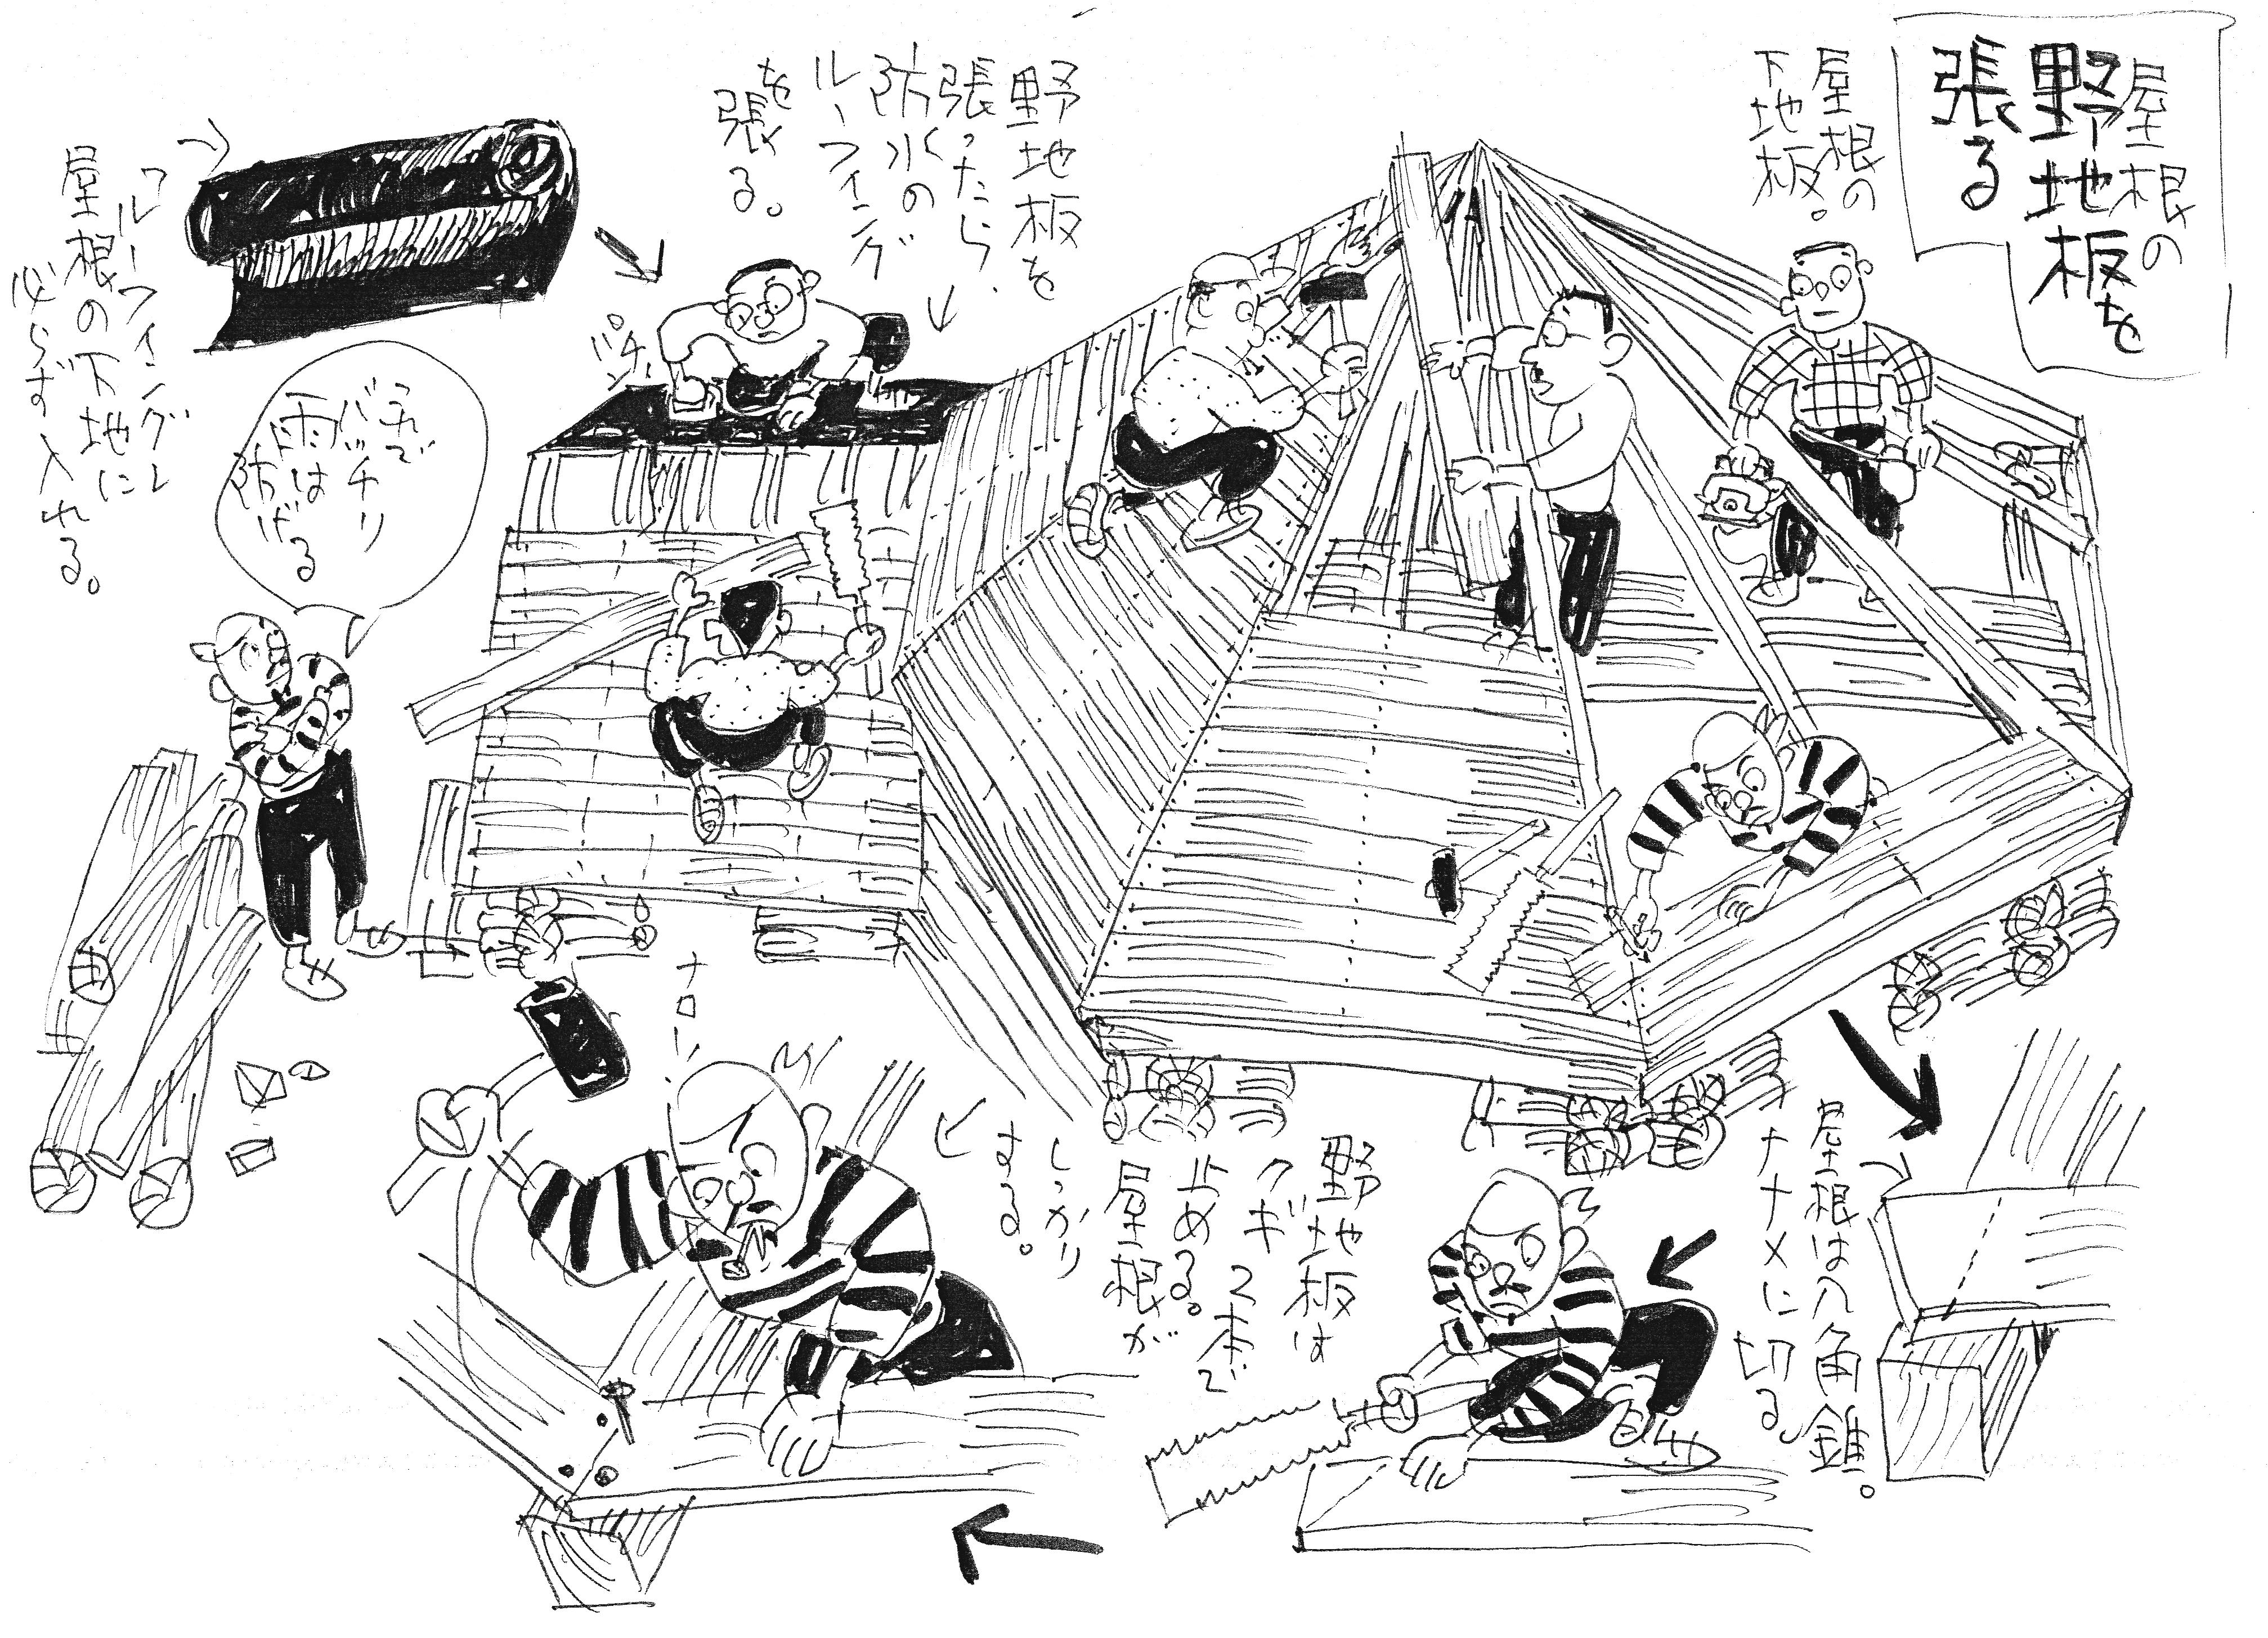 屋根の
野地板を
張る
屋根の
下地板。
野地板を
張ったら、
防水の
ルーフィング
を
張る。
パチ、
ルーフィング
屋根の下地に
必らず入れる。
これで
バッチリ
雨は
防げる
屋根は八角錐。
ナナメに切る。
野地板は
クギ2本で
止める。
屋根が
しっかり
する。